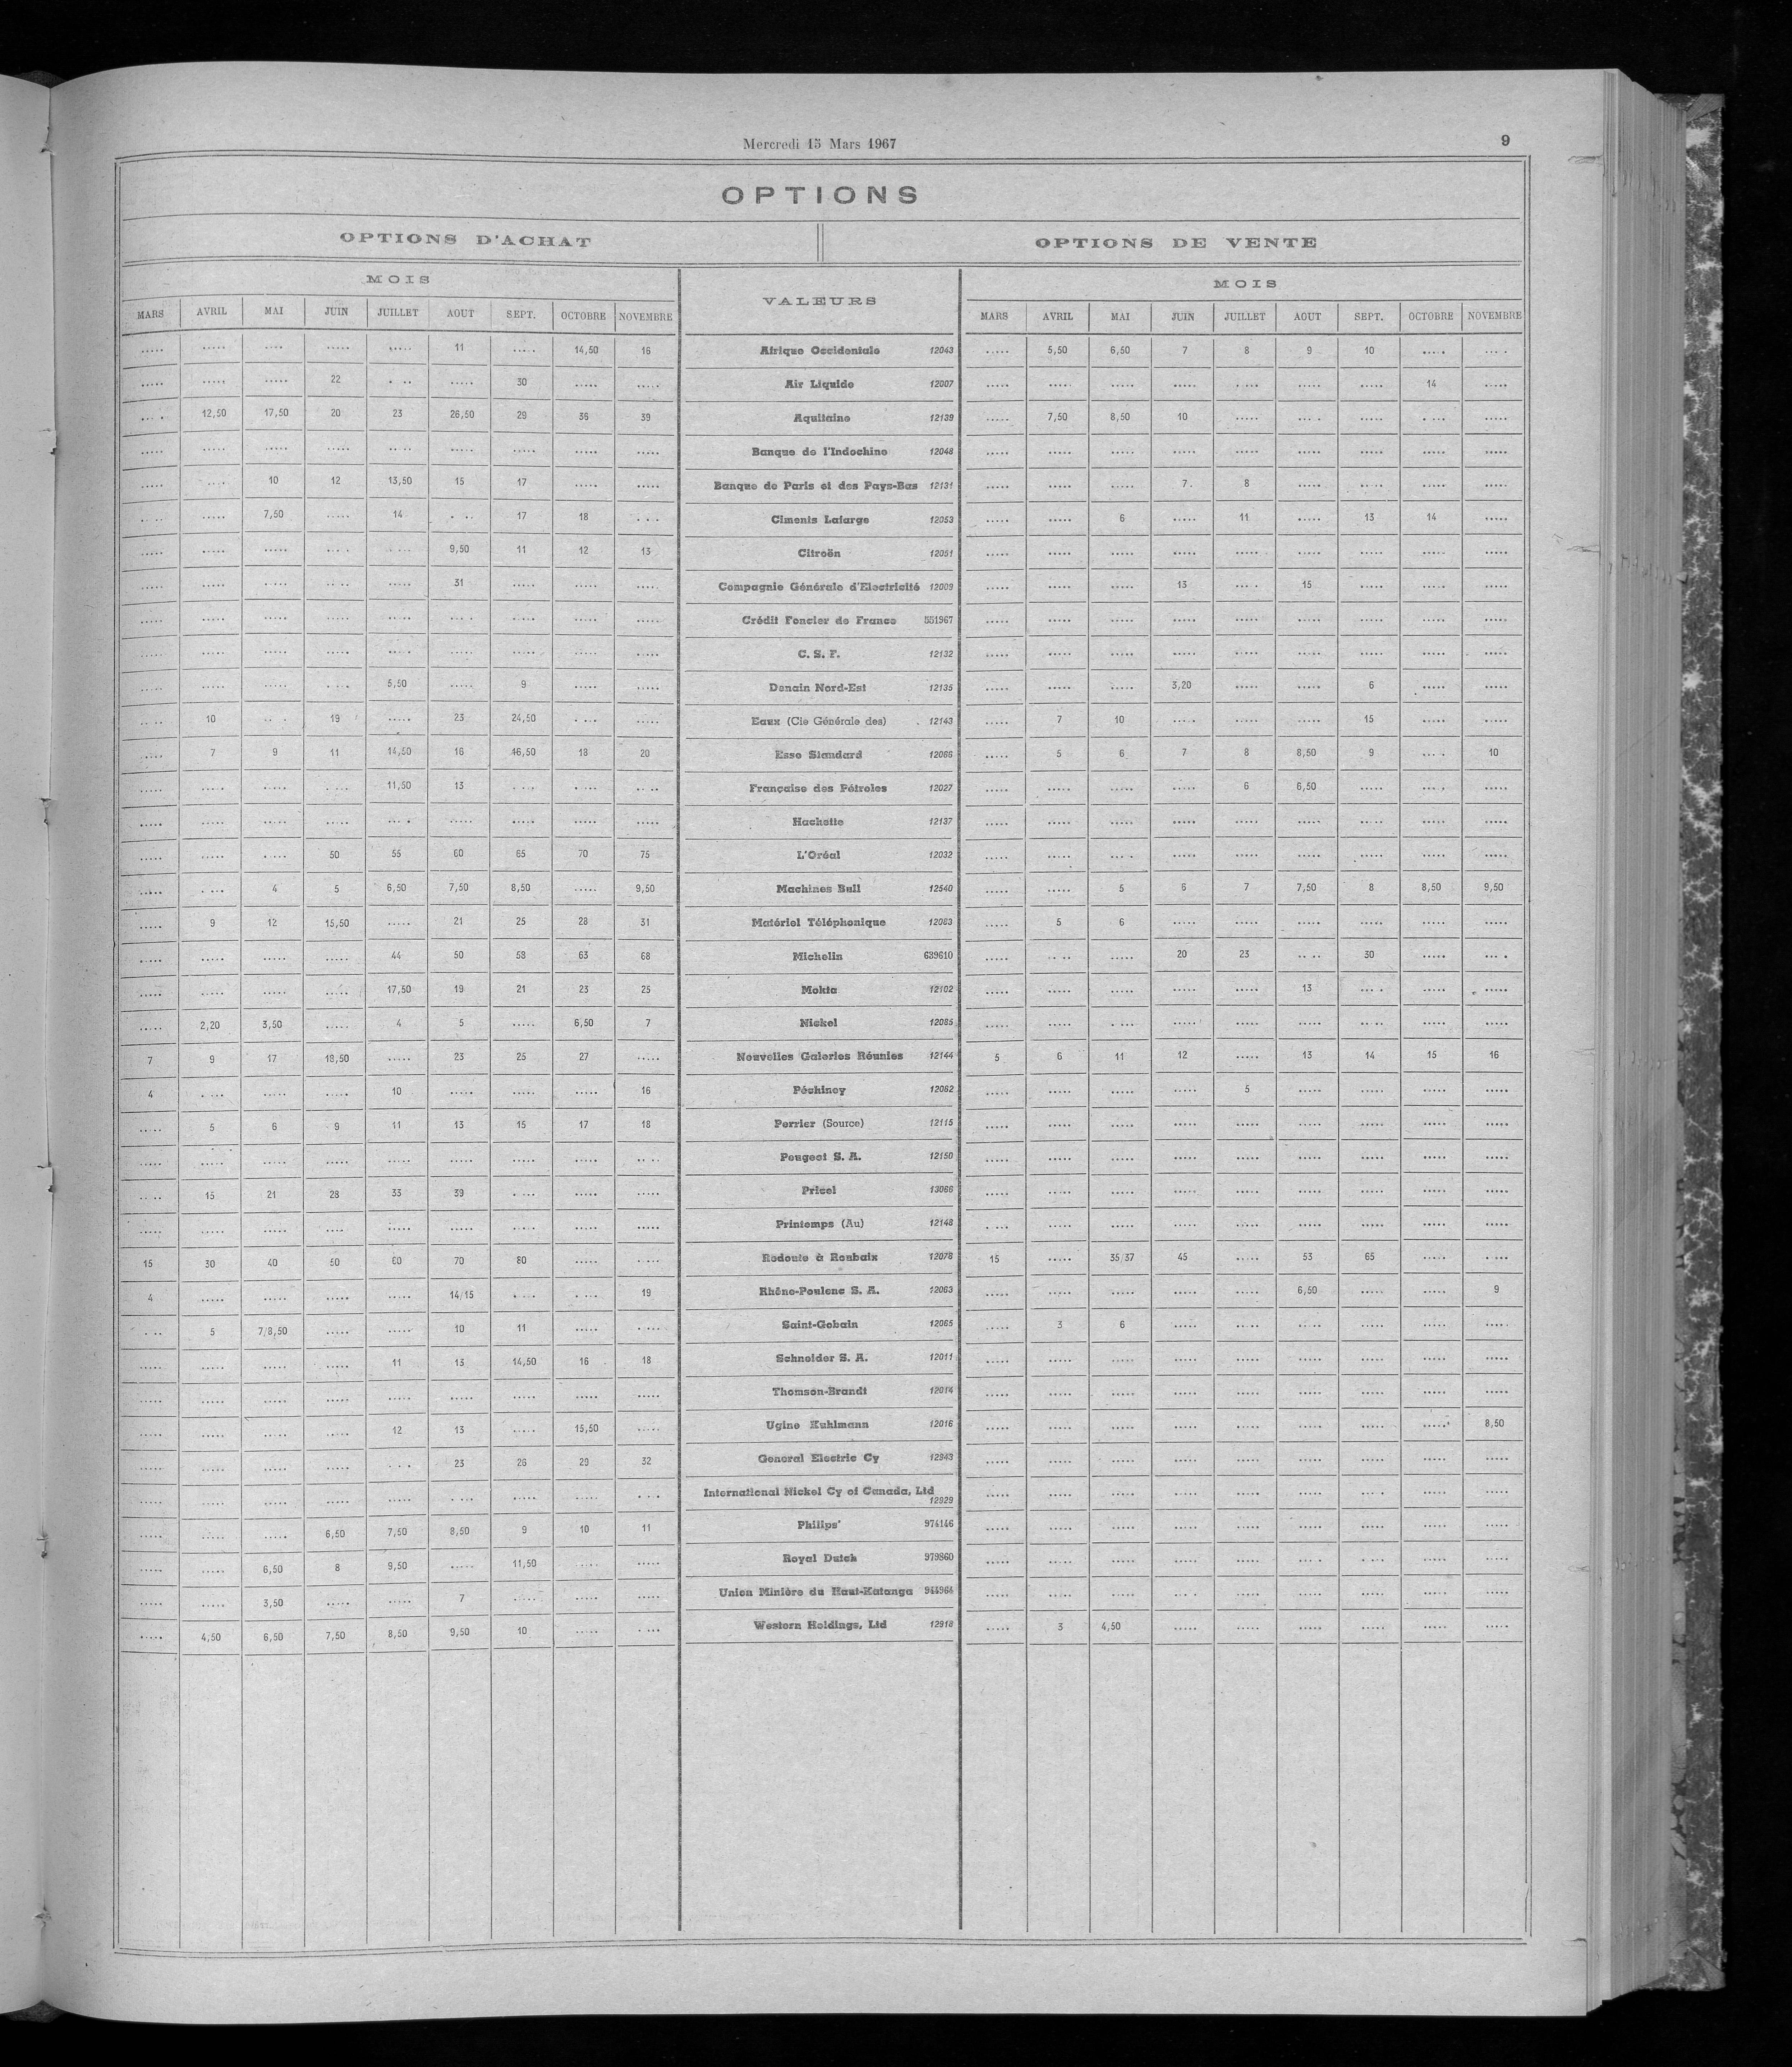 Mercredi 15 Mars 1967 9
OPTIONS
OPTIONS D'ACHAT OPTIONS DE VENTE
MOIS VALEURS MOIS
MARS AVRIL MAI JUIN JUILLET AOUT SEPT. OCTOBRE NOVEMBRE MARS AVRIL MAI JUIN JUILLET AOUT SEPT. OCTOBRE NOVEMBRE
..... ..... .... ..... ..... 11 ..... 14,50 16 Afrique Occidentale 12043 ..... 5,50 6,50 7 8 9 10 ..... .....
..... ..... ..... 22 ..... ..... 30 ..... ..... Air Liquide 12007 ..... ..... ..... ..... ..... ..... ..... 14 .....
..... 12,50 17,50 20 23 26,50 29 36 39 Aquitaine 12139 ..... 7,50 8,50 10 ..... ..... ..... ..... .....
..... ..... ..... ..... ..... ..... ..... ..... ..... Banque de l'Indochine 12048 ..... ..... ..... ..... ..... ..... ..... ..... .....
..... ..... 10 12 13,50 15 17 ..... ..... Banque de Paris et des Pays-Bas 12131 ..... ..... ..... 7 8 ..... ..... ..... .....
..... ..... 7,50 ..... 14 ..... 17 18 ..... Ciments Lafarge 12053 ..... ..... 6 ..... 11 ..... 13 14 .....
..... ..... ..... ..... ..... 9,50 11 12 13 Citroën 12051 ..... ..... ..... ..... ..... ..... ..... ..... .....
..... ..... ..... ..... ..... 31 ..... ..... ..... Compagnie Générale d'Electricité 12009 ..... ..... ..... 13 ..... 15 ..... ..... .....
..... ..... ..... ..... ..... ..... ..... ..... ..... Crédit Foncier de France 551967 ..... ..... ..... ..... ..... ..... ..... ..... .....
..... ..... ..... ..... ..... ..... ..... ..... ..... C. S. F. 12132 ..... ..... ..... ..... ..... ..... ..... ..... .....
..... ..... ..... ..... 5,50 ..... 9 ..... ..... Denain Nord-Est 12135 ..... ..... ..... 3,20 ..... ..... 6 ..... .....
..... 10 ..... 19 ..... 23 24,50 ..... ..... Eaux (Cie Générale des) 12143 ..... 7 10 ..... ..... ..... 15 ..... .....
..... 7 9 11 14,50 16 16,50 18 20 Esso Standard 12066 ..... 5 6 7 8 8,50 9 ..... 10
..... ..... ..... ..... 11,50 13 ..... ..... ..... Française des Pétroles 12027 ..... ..... ..... ..... 6 6,50 ..... ..... .....
..... ..... ..... ..... ..... ..... ..... ..... ..... Hachette 12137 ..... ..... ..... ..... ..... ..... ..... ..... .....
..... ..... ..... 50 55 60 65 70 75 L'Oréal 12032 ..... ..... ..... ..... ..... ..... ..... ..... .....
..... ..... 4 5 6,50 7,50 8,50 ..... 9,50 Machines Bull 12540 ..... ..... 5 6 7 7,50 8 8,50 9,50
..... 9 12 15,50 ..... 21 25 28 31 Matériel Téléphonique 12083 ..... 5 6 ..... ..... ..... ..... ..... .....
..... ..... ..... ..... 44 50 58 63 68 Michelin 639610 ..... ..... ..... 20 23 ..... 30 ..... .....
..... ..... ..... ..... 17,50 19 21 23 25 Mokta 12102 ..... ..... ..... ..... ..... 13 ..... ..... .....
..... 2,20 3,50 ..... 4 5 ..... 6,50 7 Nickel 12085 ..... ..... ..... ..... ..... ..... ..... ..... .....
7 9 17 18,50 ..... 23 25 27 ..... Nouvelles Galeries Réunies 12144 5 6 11 12 ..... 13 14 15 16
4 ..... ..... ..... 10 ..... ..... ..... 16 Péchiney 12082 ..... ..... ..... ..... 5 ..... ..... ..... .....
..... 5 6 9 11 13 15 17 18 Perrier (Source) 12115 ..... ..... ..... ..... ..... ..... ..... ..... .....
..... ..... ..... ..... ..... ..... ..... ..... ..... Peugeot S. A. 12150 ..... ..... ..... ..... ..... ..... ..... ..... .....
..... 15 21 28 33 39 ..... ..... ..... Pricel 13066 ..... ..... ..... ..... ..... ..... ..... ..... .....
..... ..... ..... .... ..... ..... ..... ..... ..... Printemps (Au) 12148 ..... ..... ..... ..... ..... ..... ..... ..... .....
15 30 40 50 60 70 80 ..... ..... Redoute à Roubaix 12078 15 ..... 35/37 45 ..... 53 65 ..... .....
4 ..... ..... ..... ..... 14/15 ..... ..... 19 Rhône-Poulenc S. A. 12063 ..... ..... ..... ..... ..... 6,50 ..... ..... 9
..... 5 7/8,50 ..... ..... 10 11 ..... ..... Saint-Gobain 12065 ..... 3 6 ..... ..... ..... ..... ..... .....
..... ..... ..... ..... 11 13 14,50 16 18 Schneider S. A. 12011 ..... ..... ..... ..... ..... ..... ..... ..... .....
..... ..... ..... ..... ..... ..... ..... ..... ..... Thomson-Brandt 12014 ..... ..... ..... ..... ..... ..... ..... ..... .....
..... ..... ..... ..... 12 13 ..... 15,50 ..... Ugine Kuhlmann 12016 ..... ..... ..... ..... ..... ..... ..... ..... 8,50
..... ..... ..... ..... ..... 23 26 29 32 General Electric Cy 12943 ..... ..... ..... ..... ..... ..... ..... ..... .....
..... ..... ..... ..... ..... ..... ..... ..... ..... International Nickel Cy of Canada, Ltd 12929 ..... ..... ..... ..... ..... ..... ..... ..... .....
..... ..... ..... 6,50 7,50 8,50 9 10 11 Philips' 974146 ..... ..... ..... ..... ..... ..... ..... ..... .....
..... ..... 6,50 8 9,50 ..... 11,50 ..... ..... Royal Dutch 979860 ..... ..... ..... ..... ..... ..... ..... ..... .....
..... ..... 3,50 ..... ..... 7 ..... ..... ..... Union Minière du Haut-Katanga 944964 ..... ..... ..... ..... ..... ..... ..... ..... .....
..... 4,50 6,50 7,50 8,50 9,50 10 ..... ..... Western Holdings, Ltd 12918 ..... 3 4,50 ..... ..... ..... ..... ..... .....